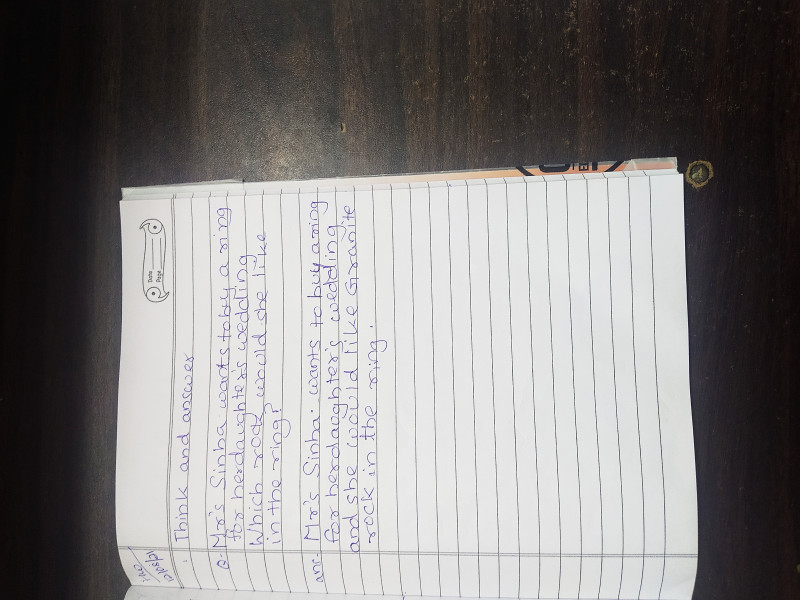 Date
Page
Think and answer
Q- Mr's Sinha wants to buy a ring
for herdaughter's wedding
Which rock would she like
in the ring?
ans- Mr's Sinha. wants to buy a ring
for herdaughter's wedding
and she would like Granite
rock in the ring.